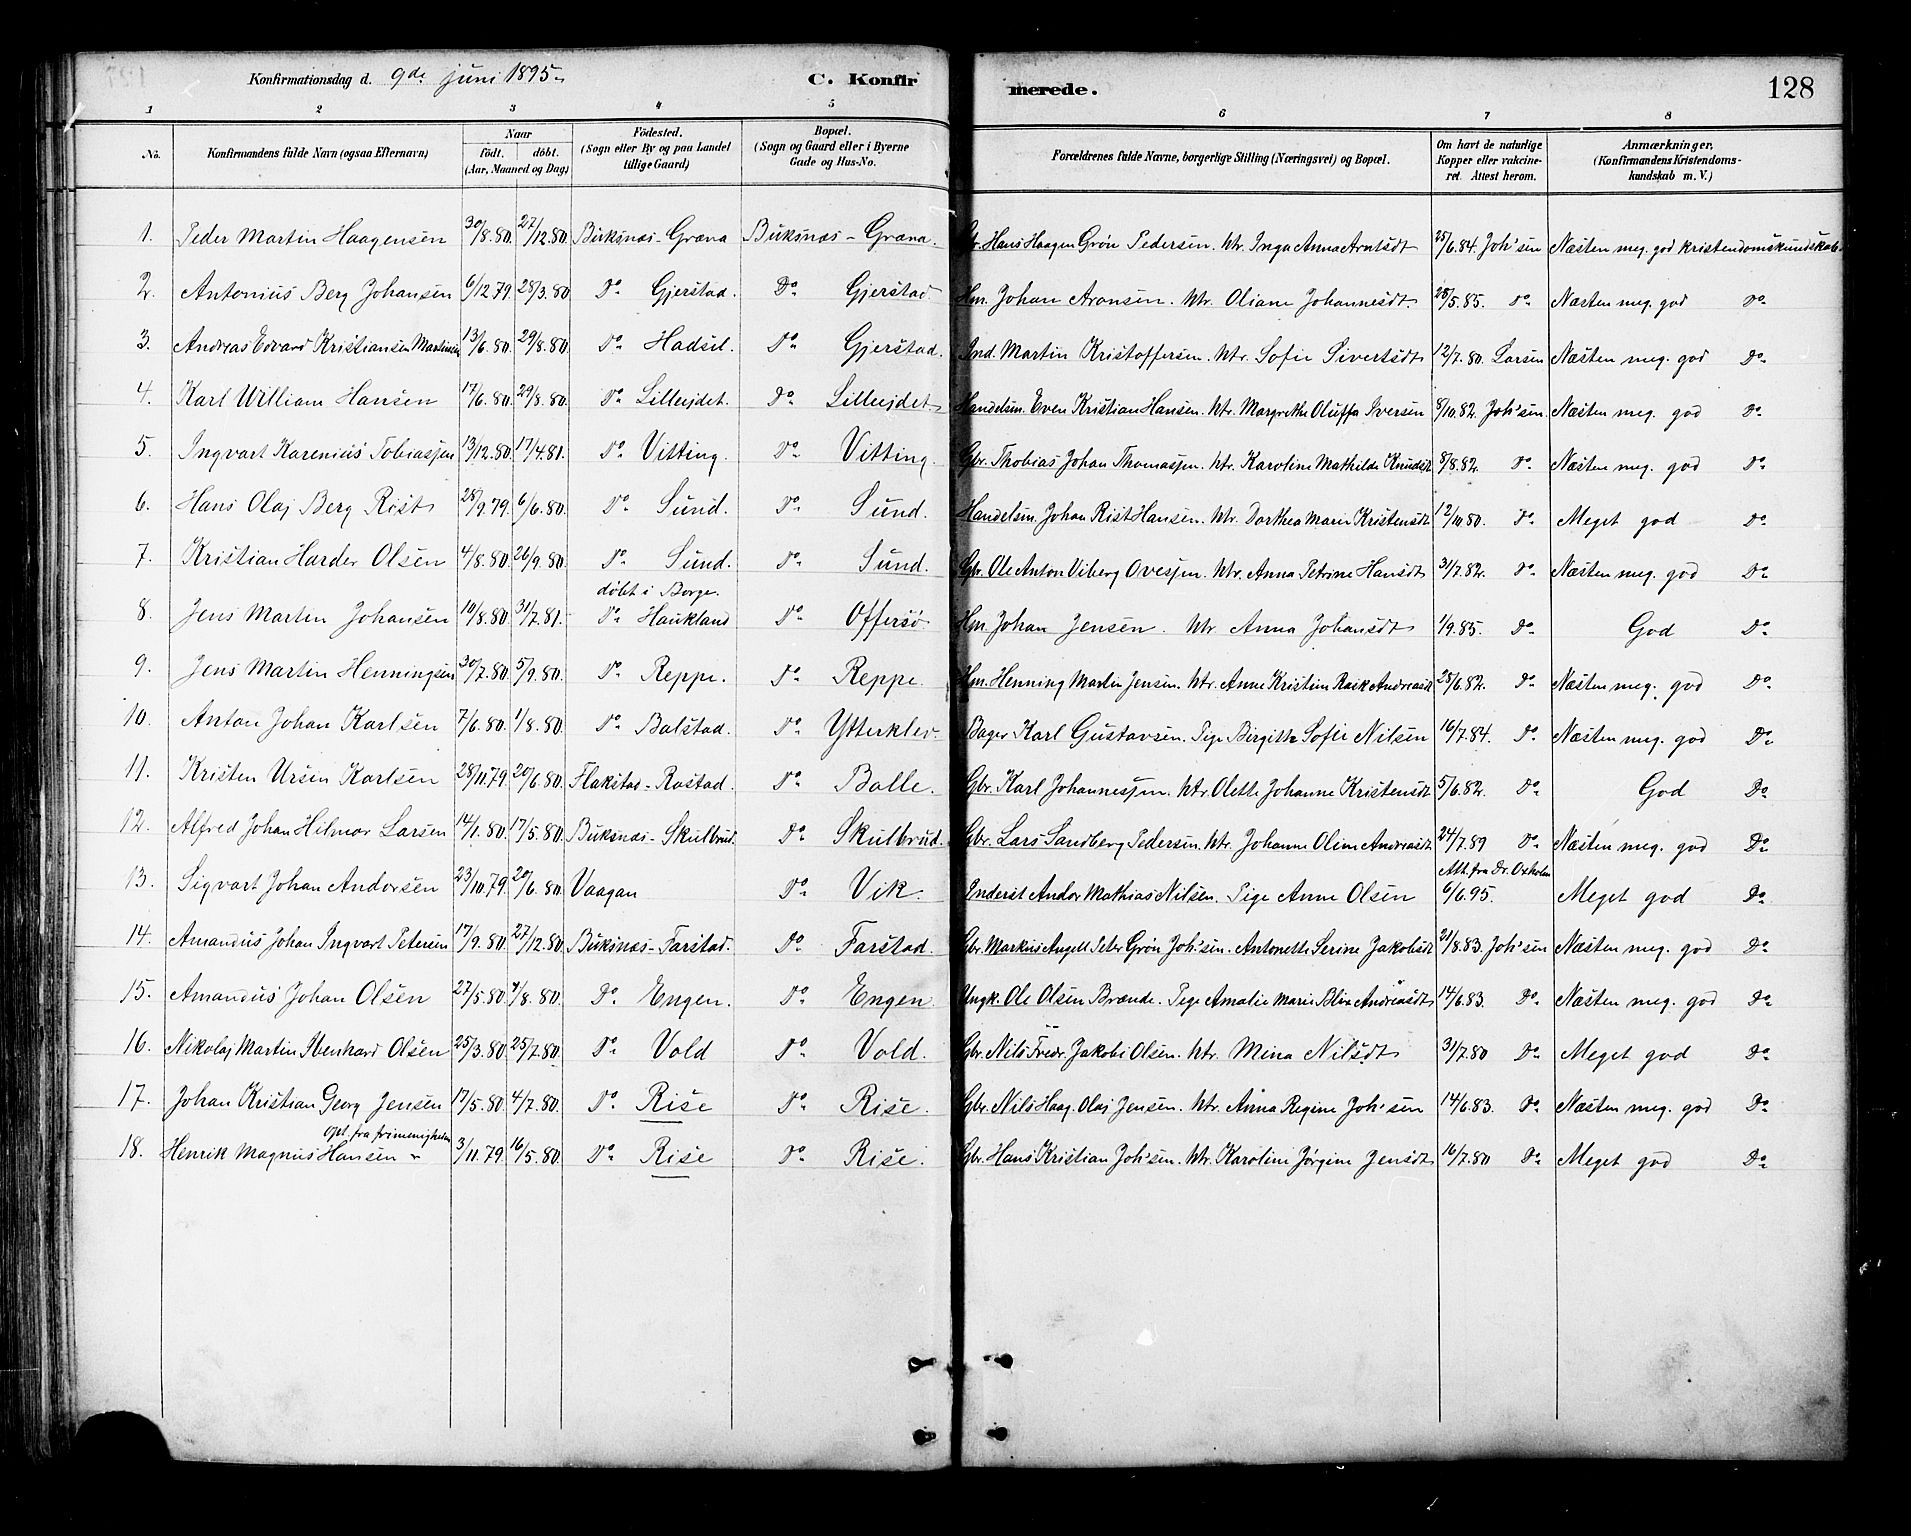 Konfirmationsdag d. 9de juni 1895
C. Konfirmerede. 128
1 2 3 4 5 6 7 8
No. Konfirmandens fulde Navn (ogsaa Efternavn) Naar født. døbt. (Aar, Maaned og Dag) Födested. (Sogn eller By og paa Landet tillige Gaard) Bopæl. (Sogn og Gaard eller i Byerne Gade og Hus-No. Forældrenes fulde Navne, borgerlige Stilling (Næringsvei) og Bopæl. Om havt de naturlige Kopper eller vakcineret. Attest herom. Anmærkninger, (Konfirmandens Kristendomskundskab m. V.)
1. Peder Martin Haagensen 30/8.80. 27/12.80 Buksnæs-Græna Buksnæs-Græna. Hans Haagen Grøn Pedersen. Htr. Inga Anna Arntsdt 25/6.84. Joh'sen Næsten meg. god kristendomskundskab.
2. Antonius Berg Johansen 6/12.79 28/3.80 Do Gjerstad. Do Gjerstad. Hm. Johan Aronsen. Htr. Oliane Johannesdt 28/5.85. Do Næsten meg. god Do
3. Andreas Edvard Kristiansen Martinsen 13/6.80. 29/8.80. Do Hadsel. Do Gjerstad. Ind. Martin Kristoffersen. Htr. Sofie Sivertsdt 12/7.80. Larsen Næsten meg. god Do
4. Karl William Hansen 17/6.80. 29/8.80. Do Lilleejdet. Do Lilleejdet Handelsm. Even Kristian Hansen. Htr. Margrethe Oluffa Iversen 8/10.82. Joh'sen. Næsten meg. god Do
5. Ingvart Karenius Tobiassen 13/12.80. 17/4.81. Do Vitting. Do Vitting. Gbr. Thobias Johan Thomassen. Htr. Karoline Mathilde Knudsdt 8/8.82. Do Næsten meg. god Do
6. Hans Olaj Berg Rist 28/9.79. 6/6.80. Do Sund. Do Sund. Handelsm. Johan Rist Hansen. Htr. Dorthea Marie Kristensdt 12/10.80. Do Meget god Do
7. Kristian Harder Olsen 4/8.80. 26/9.80. Do Sund. Do Sund. Gbr. Ole Anton Viberg Ovesen. Htr. Anna Petrine Hansdt 31/7.82. Do Næsten meg. god Do
døbt i Borge.
8. Jens Martin Johansen 10/8.80. 31/7.81. Do Haukland Do Offersø Hm. Johan Jensen. Htr Anna Johansdt 1/9.85. Do God Do
9. Jens Martin Henningsen 30/7.80. 5/9.80. Do Reppe. Do Reppe Hm. Henning Martin Jensen. Htr. Anne Kristine Rask Andreasdt 28/6.82. Do Næsten meg. god Do
10. Anton Johan Karlsen 7/6.80. 1/8.80. Do Balstad. Do Ytterklev Bager Karl Gustavsen. Pige Birgitte Sofie Nilsen 16/7.84. Do Næsten meg. god Do
11. Kristen Ursin Karlsen 28/11.79. 20/6.80. Flakstad-Rostad. Do Bolle. Gbr. Karl Johannessen. Htr. Olette Johanne Kristensdt 5/6.82. Do God Do
12. Alfred Johan Hilmar Larsen 14/1.80. 17/5.80. Buksnæs-Skulbrud. Do Skulbrud. Gbr. Lars Sandberg Pedersen. Htr. Johanne Oline Andreasdt 24/7.89 Do Næsten meg. god Do
Att. fra Dr. Oxholm
13. Sigvart Johan Andorsen 23/10.79. 20/6.80. Vaagan Do Vik. Inderst Andor Mathias Nilsen. Pige Anne Olsen 6/6.95. Meget god Do
14. Amandus Johan Ingvart Petersen 17/9.80 27/12.80. Buksnæs-Farstad. Do Farstad. Gbr. Markus Angell Peter Grøn Joh'sen. Antonette Serine Jakobsdt 21/8.83. Joh'sen Næsten meg. god Do
15. Amandus Johan Olsen 27/5.80. /8.80. Do Engen. Do Engen Ungk. Ole Olsen Brænde. Pige Amalie Marie Blix Andreasdt 14/6.83. Do Næsten meg. god Do
16. Nikolaj Martin Ibenhard Olsen 25/3.80. 25/7.80. Do Vold Do Vold. Gbr. Nils Fredr. Jakobi Olsen. Htr. Mina Nilsdt 31/7.80 Do Meget god Do
17. Johan Kristian Georg Jensen 17/5.80. 4/7.80. Do Rise Do Rise. Gbr. Nils Haag. Olaj Jensen. Htr. Anna Regine Joh'sen 14/6.83. Do Næsten meg. god Do
opt. fra frimenigheden
18. Henrik Magnus Hansen 3/11.79. 16/5.80. Do Rise Do Rise. Gbr. Hans Kristian Joh'sen. Htr. Karoline Jørgine Jensdt 16/7.80 Do Meget god Do